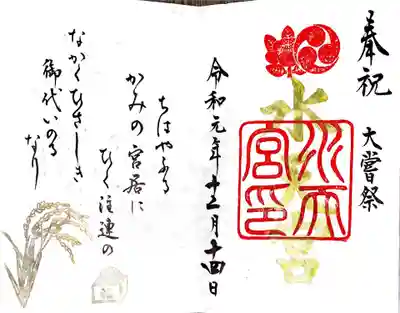 奉祝
大嘗祭
水天宮
水天宮印
令和元年十二月十四日
ちはやふる
かみの宮居に
ひく注連の
なかくひさしき
御代いのる
なり